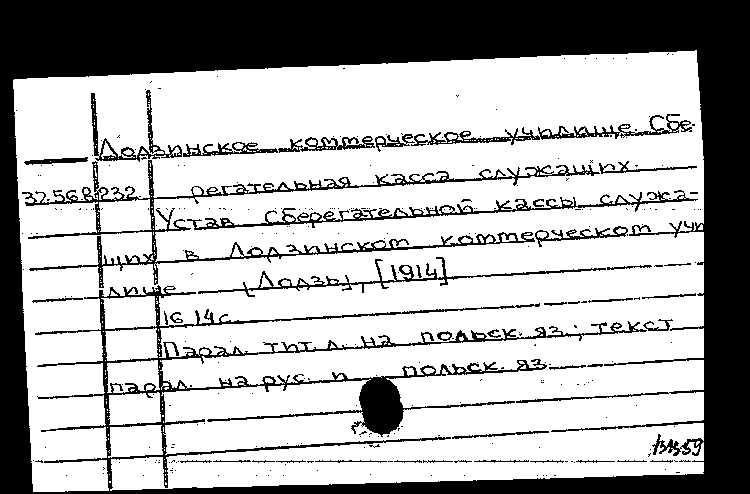 Лодзинское коммерческое училище. Сбе-
32.56.8.232 регательная касса служащих.
Устав Сберегательной кассы служа-
щих в Лодзинском коммерческом учи
лище. [Лодзь], [1914]
16, 14 с.
Парал. тит. л. на польск. яз.; текст
парал. на рус. и польск. яз.